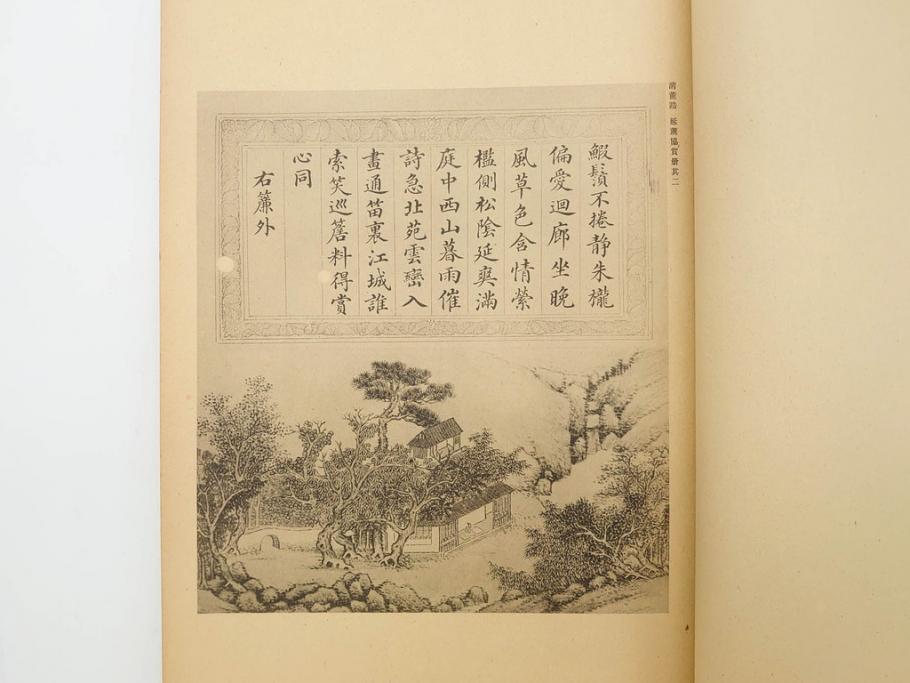 清董誥 薰協賞册其二
鰕鬚不捲静朱櫳
偏愛迴廊坐晚
風草色含情縈
檻側松陰延爽滿
庭中西山暮雨催
詩急北苑雲巒入
畫通笛裏江城誰
索笑巡簷料得賞
心同
右簾外